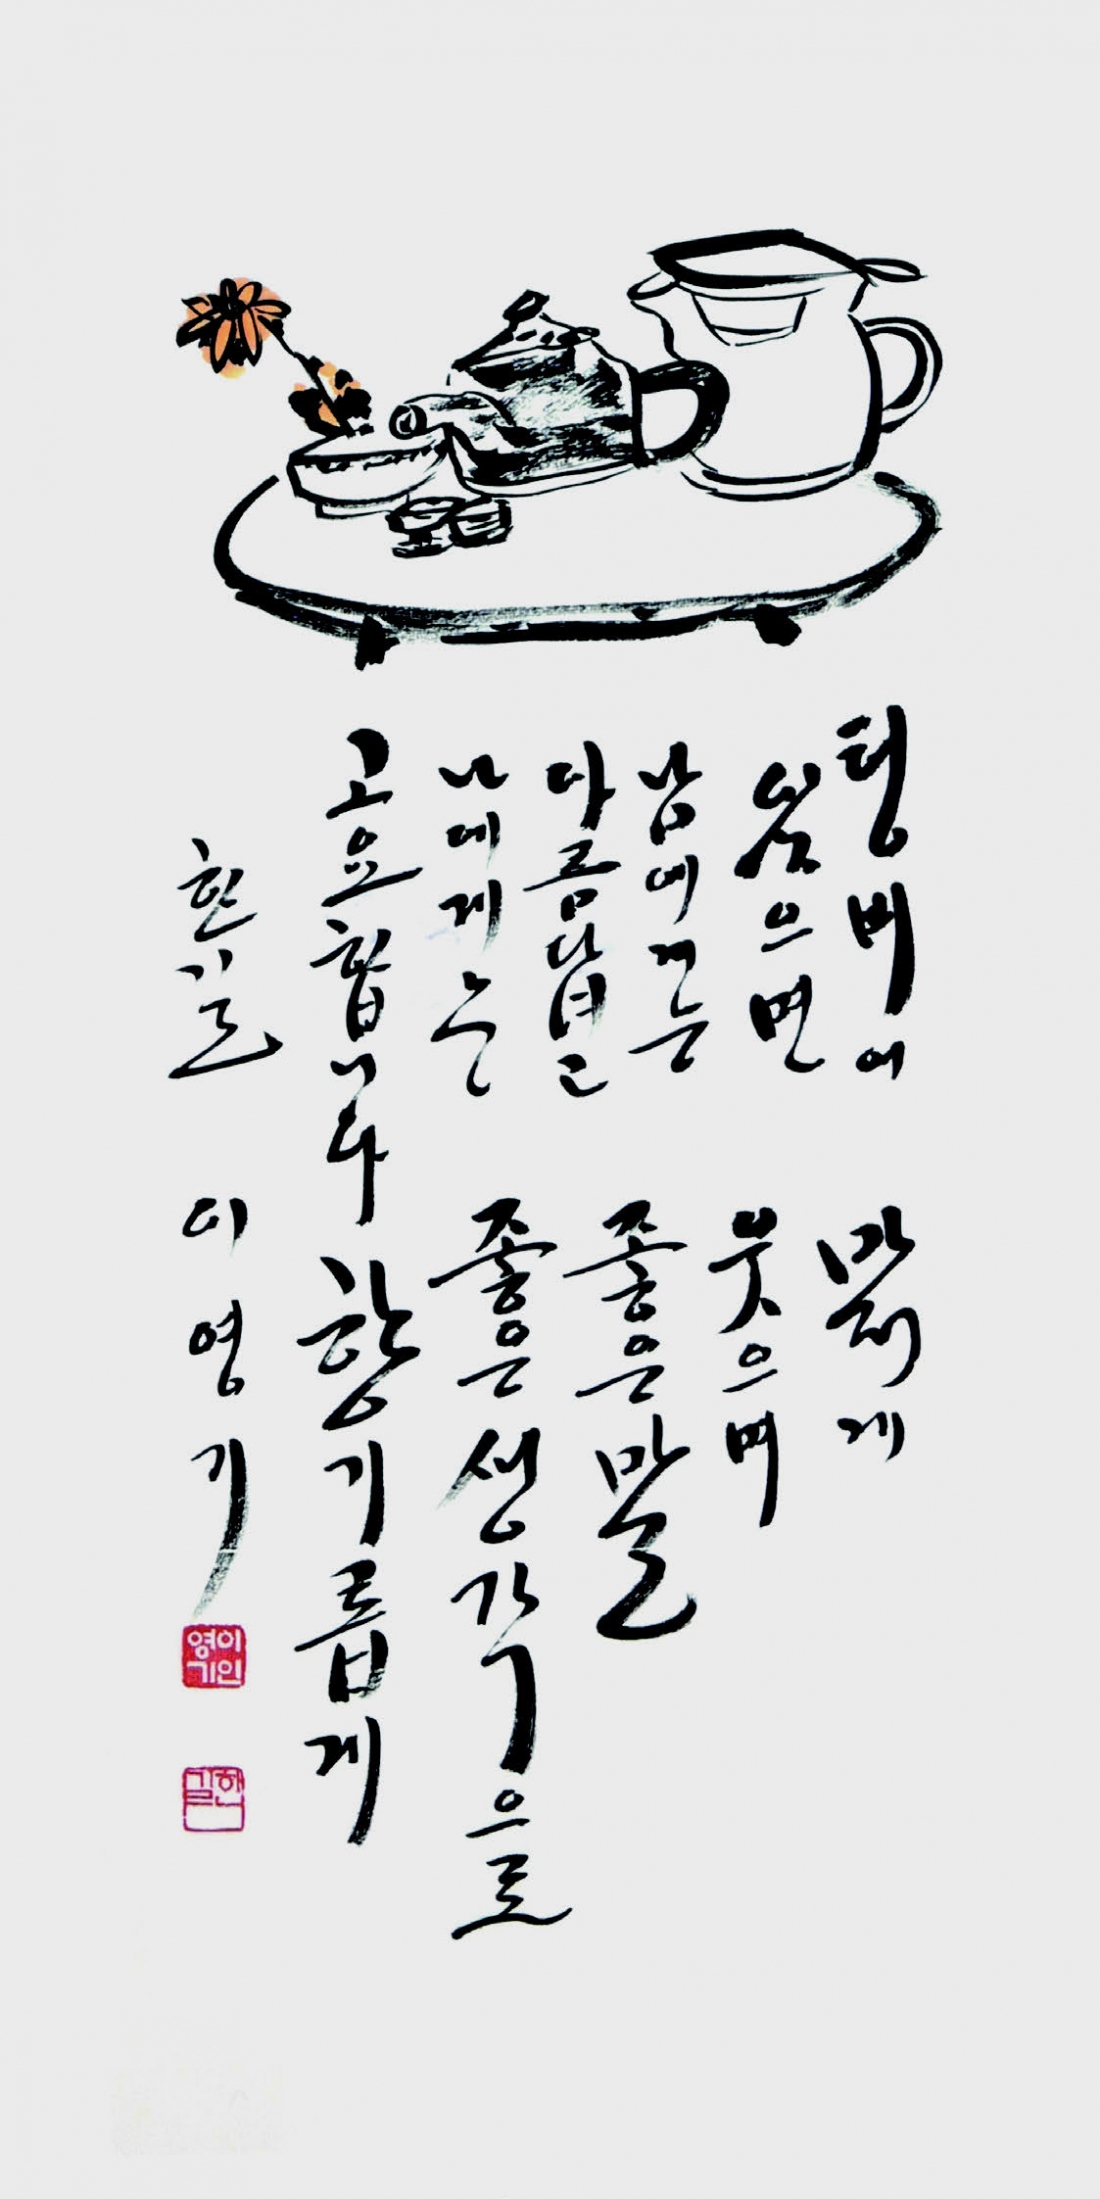 텅비어
있으면
남에게는
아름답고
나에게는
고요합니다
맑게
웃으며
좋은말
좋은생각으로
향기롭게
한길 이영기
이인영기
한길